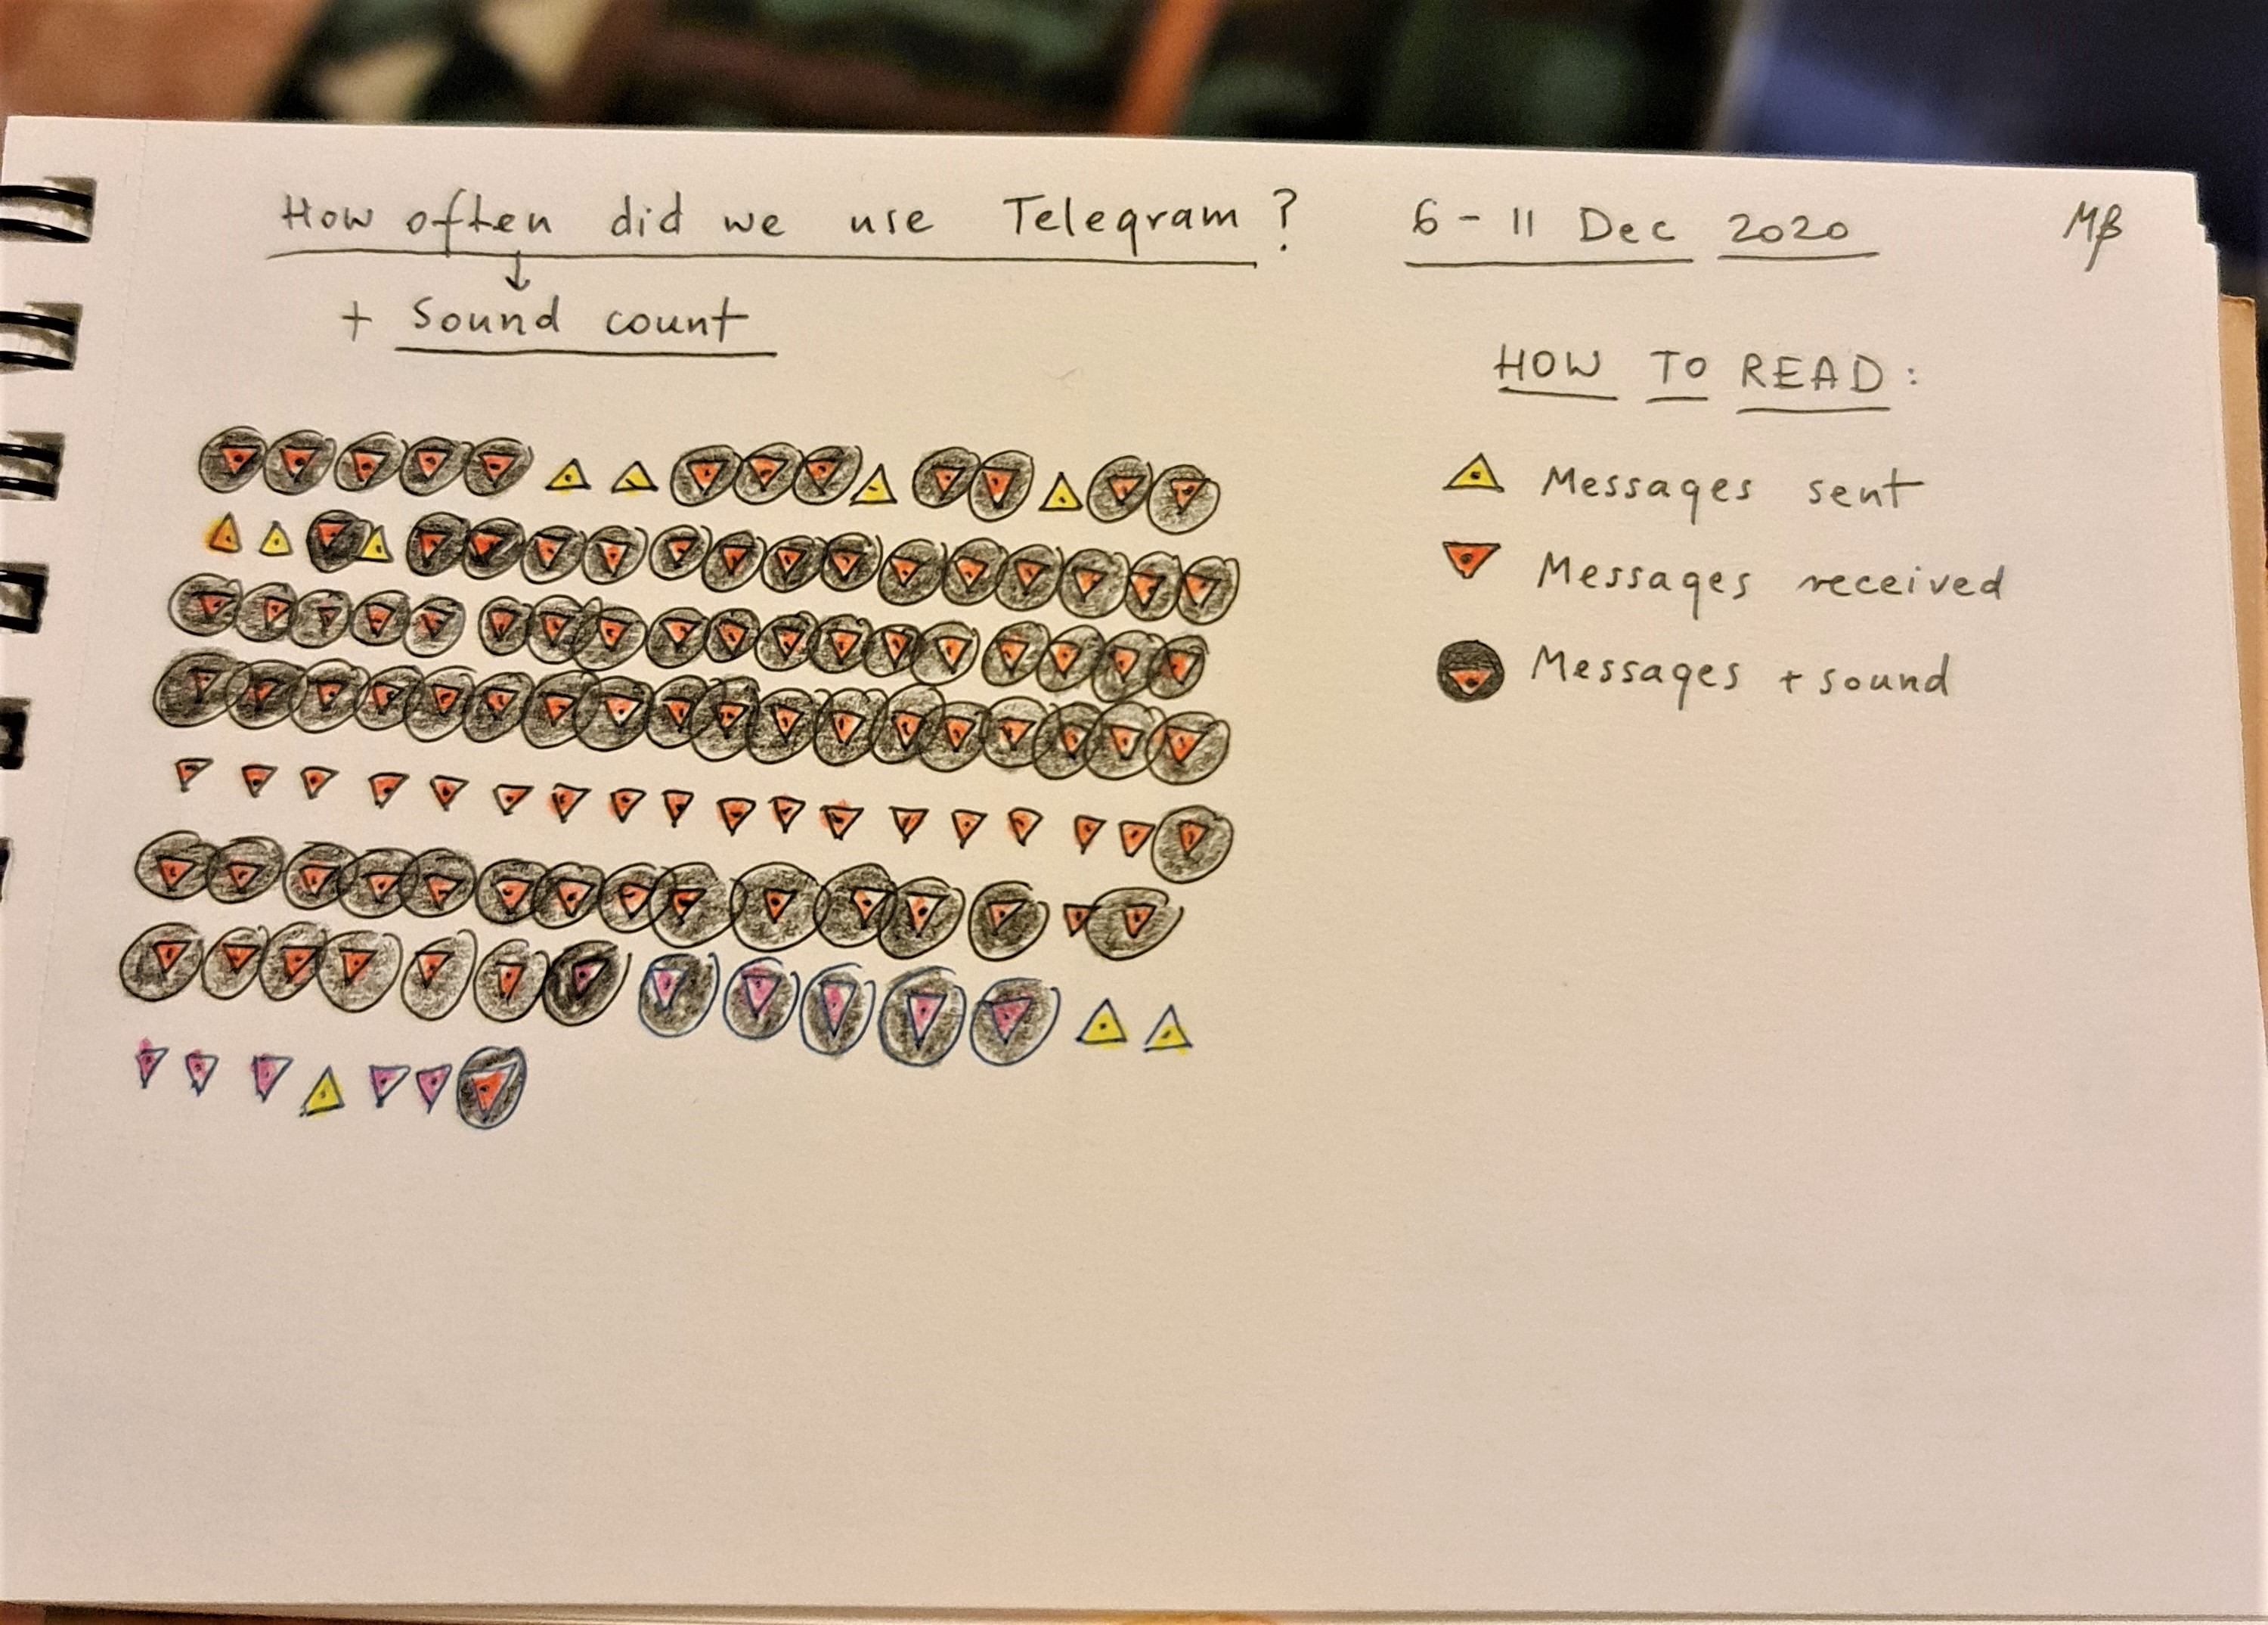 How often did we use Telegram? 6 - 11 Dec 2020 MB
+ Sound count
HOW TO READ:
Messages sent
Messages received
Messages + sound